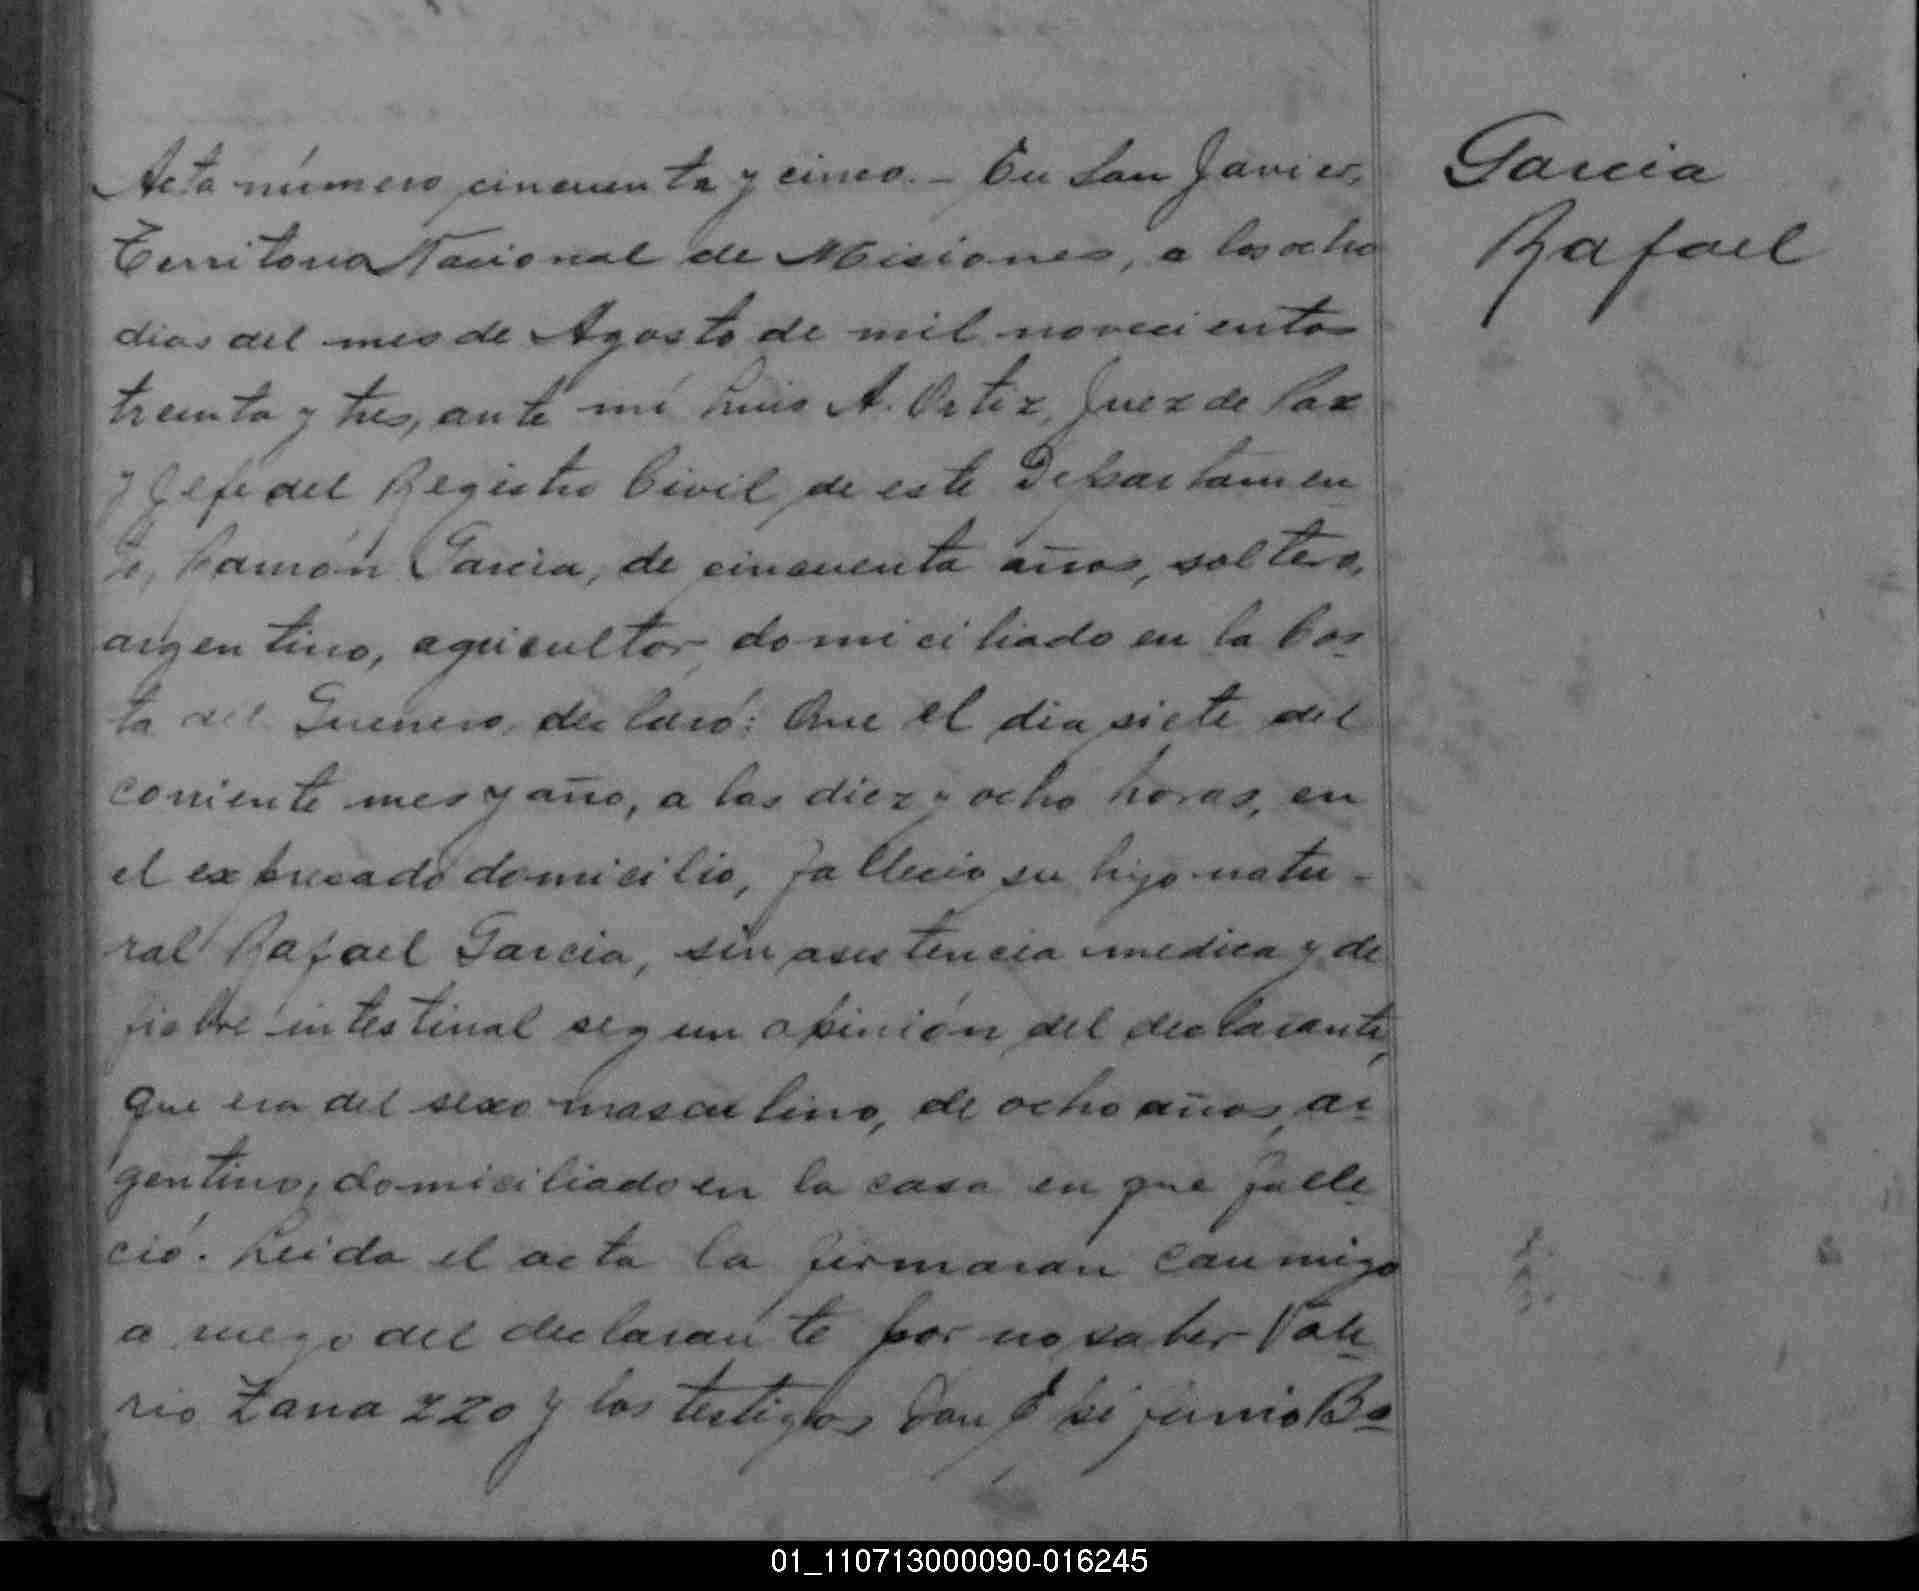 Acta número cincuenta y cinco. - En San Javier,
Territorio Nacional de Misiones, a los ocho
dias del mes de Agosto de mil novecientos
treinta y tres, ante mí Luis A. Ortiz, Juez de Paz
y Jefe del Registro Civil de este Departamen
to, Ramón Garcia, de cincuenta años, soltero,
argentino, agricultor, domiciliado en la Cos
ta del Guerrero, declaró: Que el dia siete del
corriente mes y año, a las diez y ocho horas, en
el expresado domicilio, fallecio su hijo natu-
ral Rafael Garcia, sin asistencia medica y de
fiebre intestinal segun opinión del declarante,
que era del sexo masculino, de ocho años, ar
gentino, domiciliado en la casa en que falle
ció. Leida el acta la firmaran conmigo
a ruego del declarante por no saber Vale
rio Zanazzo y los testigos Don Bo
Garcia
Rafael
01_110713000090-016245